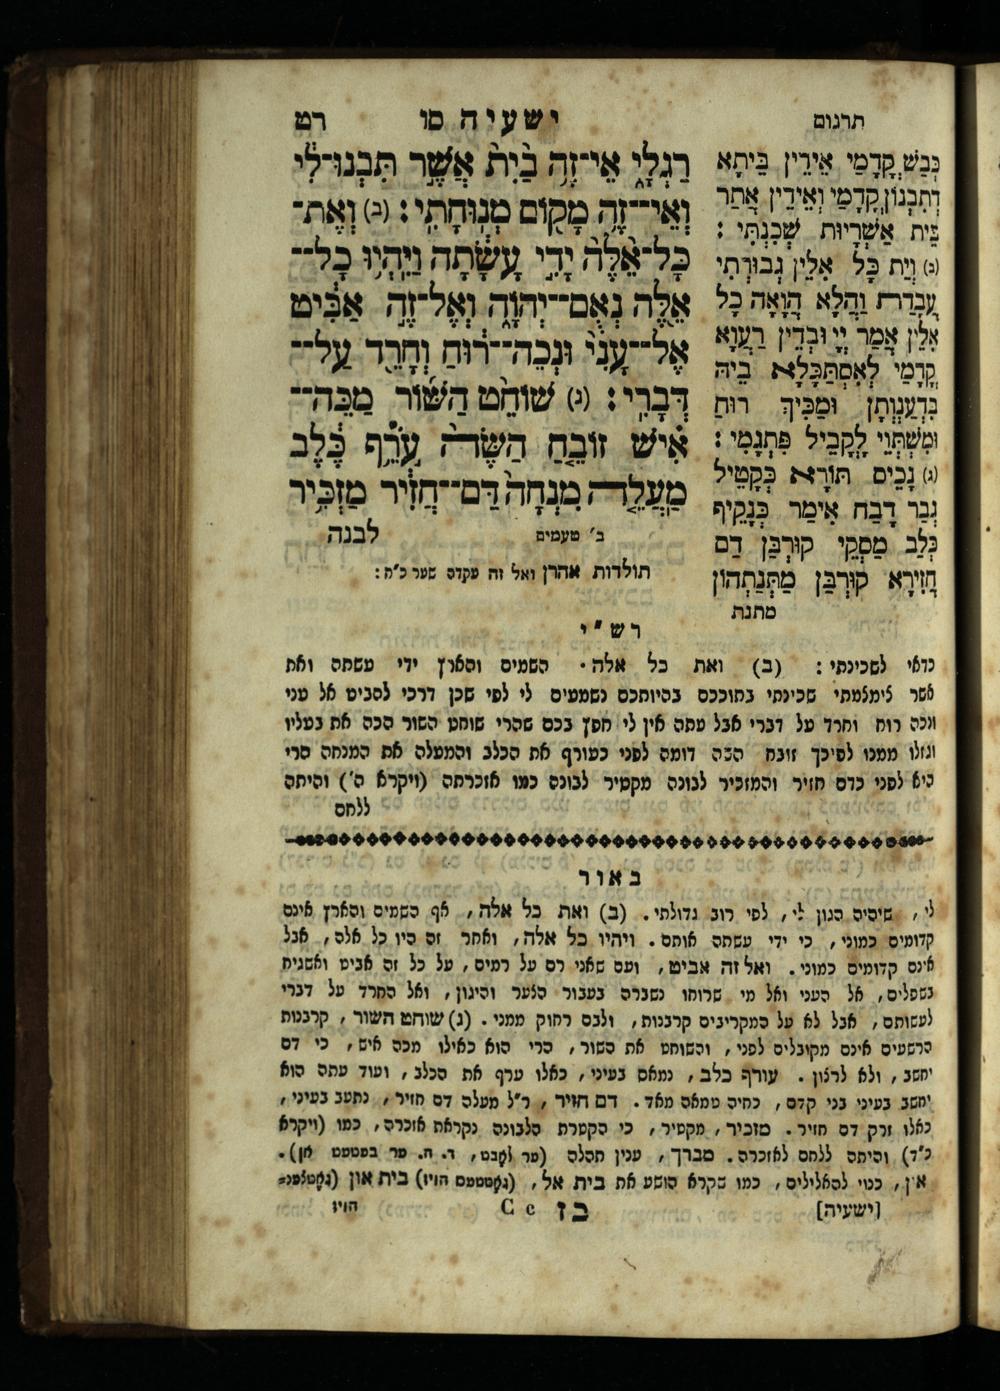 תרגום
ישעיה סו רט
רַגְלָי אֵי־זֶה בַיִת אֲשֶׁר תִּבְנוּ־לִי
וְאֵי־־זֶה מָקוֹם מְנוּחָתִי׃ (ב) וְאֶת־
כָּל־אֵלֶּה יָדִי עָשָׂתָה וַיִּהְיוּ כָל־־
אֵלֶּה נְאֻם־־יְהוָה וְאֶל־זֶה אַבִּיט
אֶל־־עָנִי וּנְכֵה־־רוּחַ וְחָרֵד עַל־־
דְּבָרִי׃ (ג) שׁוֹחֵט הַשּׁוֹר מַכֵּה־־
אִישׁ זוֹבֵחַ הַשֶּׂה עֹרֵף כֶּלֶב
מַעֲלֵה מִנְחָה דַּם־־חֲזִיר מַזְכִּיר
ב׳ טעמים לבנה
תולדות אהרן ואל זה עקדה שער כ״ח:
כְּבַשׁ קָדָמַי אֵידֵין בֵּיתָא
דְתִבְנוּן קֳדָמַי וְאֵידֵין אֲתַר
בֵּית אַשְׁרָיוּת שְׁכִנְתִּי:
(ב) וְיַת כָּל אִלֵּין גְבוּרְתִּי
עֲבָדַת וַהֲלָא הֲוָאָה כָל
אִלֵּין אֲמַר יְיָ וּבְדֵין רַעֲוָא
קֳדָמַי לְאִסְתַּכָּלָא בֵיהּ
בִּדְעַנְוְתָן וּמַכִּיךְ רוּחַ
וּמִשְׁתְּוֵי לָקֳבֵיל פִּתְגָמִי:
(ג) נָכֵיס תּוֹרָא כְּקָטֵיל
גְבַר דָבַח אִימַר כְּנָקֵיף
כְּלַב מַסְקֵי קוּרְבַּן דַם
חֲזִירָא קוּרְבַּן מַתְּנַתְהוֹן
מתנת
רש״י
כדאי לשכינתי: (ב) ואת כל אלה. השמים והארץ ידי עשתה ואת
אשר לימלמתי שכינתי בתוככם בהיותכם נשמעים לי לפי שכן דרכי להביט אל עני
ונכה רוח וחרד על דברי אבל עתה אין לי חפץ בכם שהרי שוחט השור הכה את בעליו
וגזלו ממנו לפיכך זובח השה דומה לפני כעורף את הכלב והמעלה את המנחה הרי
היא לפני כדם חזיר והמזכיר לבונה מקטיר לבונה כמו אזכרתה (ויקרא ה׳) והיתה
ללחם
באור
לי, שיהיה הגון לי, לפי רוב גדולתי. (ב) ואת כל אלה, אף השמים והארץ אינם
קדומים כמוני, כי ידי עשתה אותם. ויהיו כל אלה, ואחר זה היו כל אלה, אבל
אינם קדומים כמוני. ואל זה אביט, ועם שאני רם על רמים, על כל זה אביט ואשגיח
בשפלים, אל העני ואל מי שרוחו נשברה בעבור הצער והיגון, ואל החרד על דברי
לעשותם, אבל לא על המקריבים קרבנות, ולבם רחוק ממני. (ג) שוחט השור, קרבנות
הרשעים אינם מקובלים לפני, והשוחט את השור, הרי הוא כאילו מכה איש, כי דם
יחשב, ולא לרצון. עורף כלב, נמאס בעיני, כאלו ערף את הכלב, ועוד עתה הוא
יחשב בעיני בני קדם, כחיה טמאה מאד. דם חזיר, ר״ל מעלה דם חזיר, נתעב בעיני,
כאלו זרק דם חזיר. מזכיר, מקטיר, כי הקטרת הלבונה נקראת אזכרה, כמו (ויקרא
כ״ד) והיתה ללחם לאזכרה. מברך, ענין תהלה (ער לאָבט, ד. ה. ער בעטעט אן).
און, כנוי להאלילים, כמו שקרא הושע את בית אל, (גאָטטעס הויז) בית און (גאָטלאָזנ=
[ישעיה] כז C c הויז